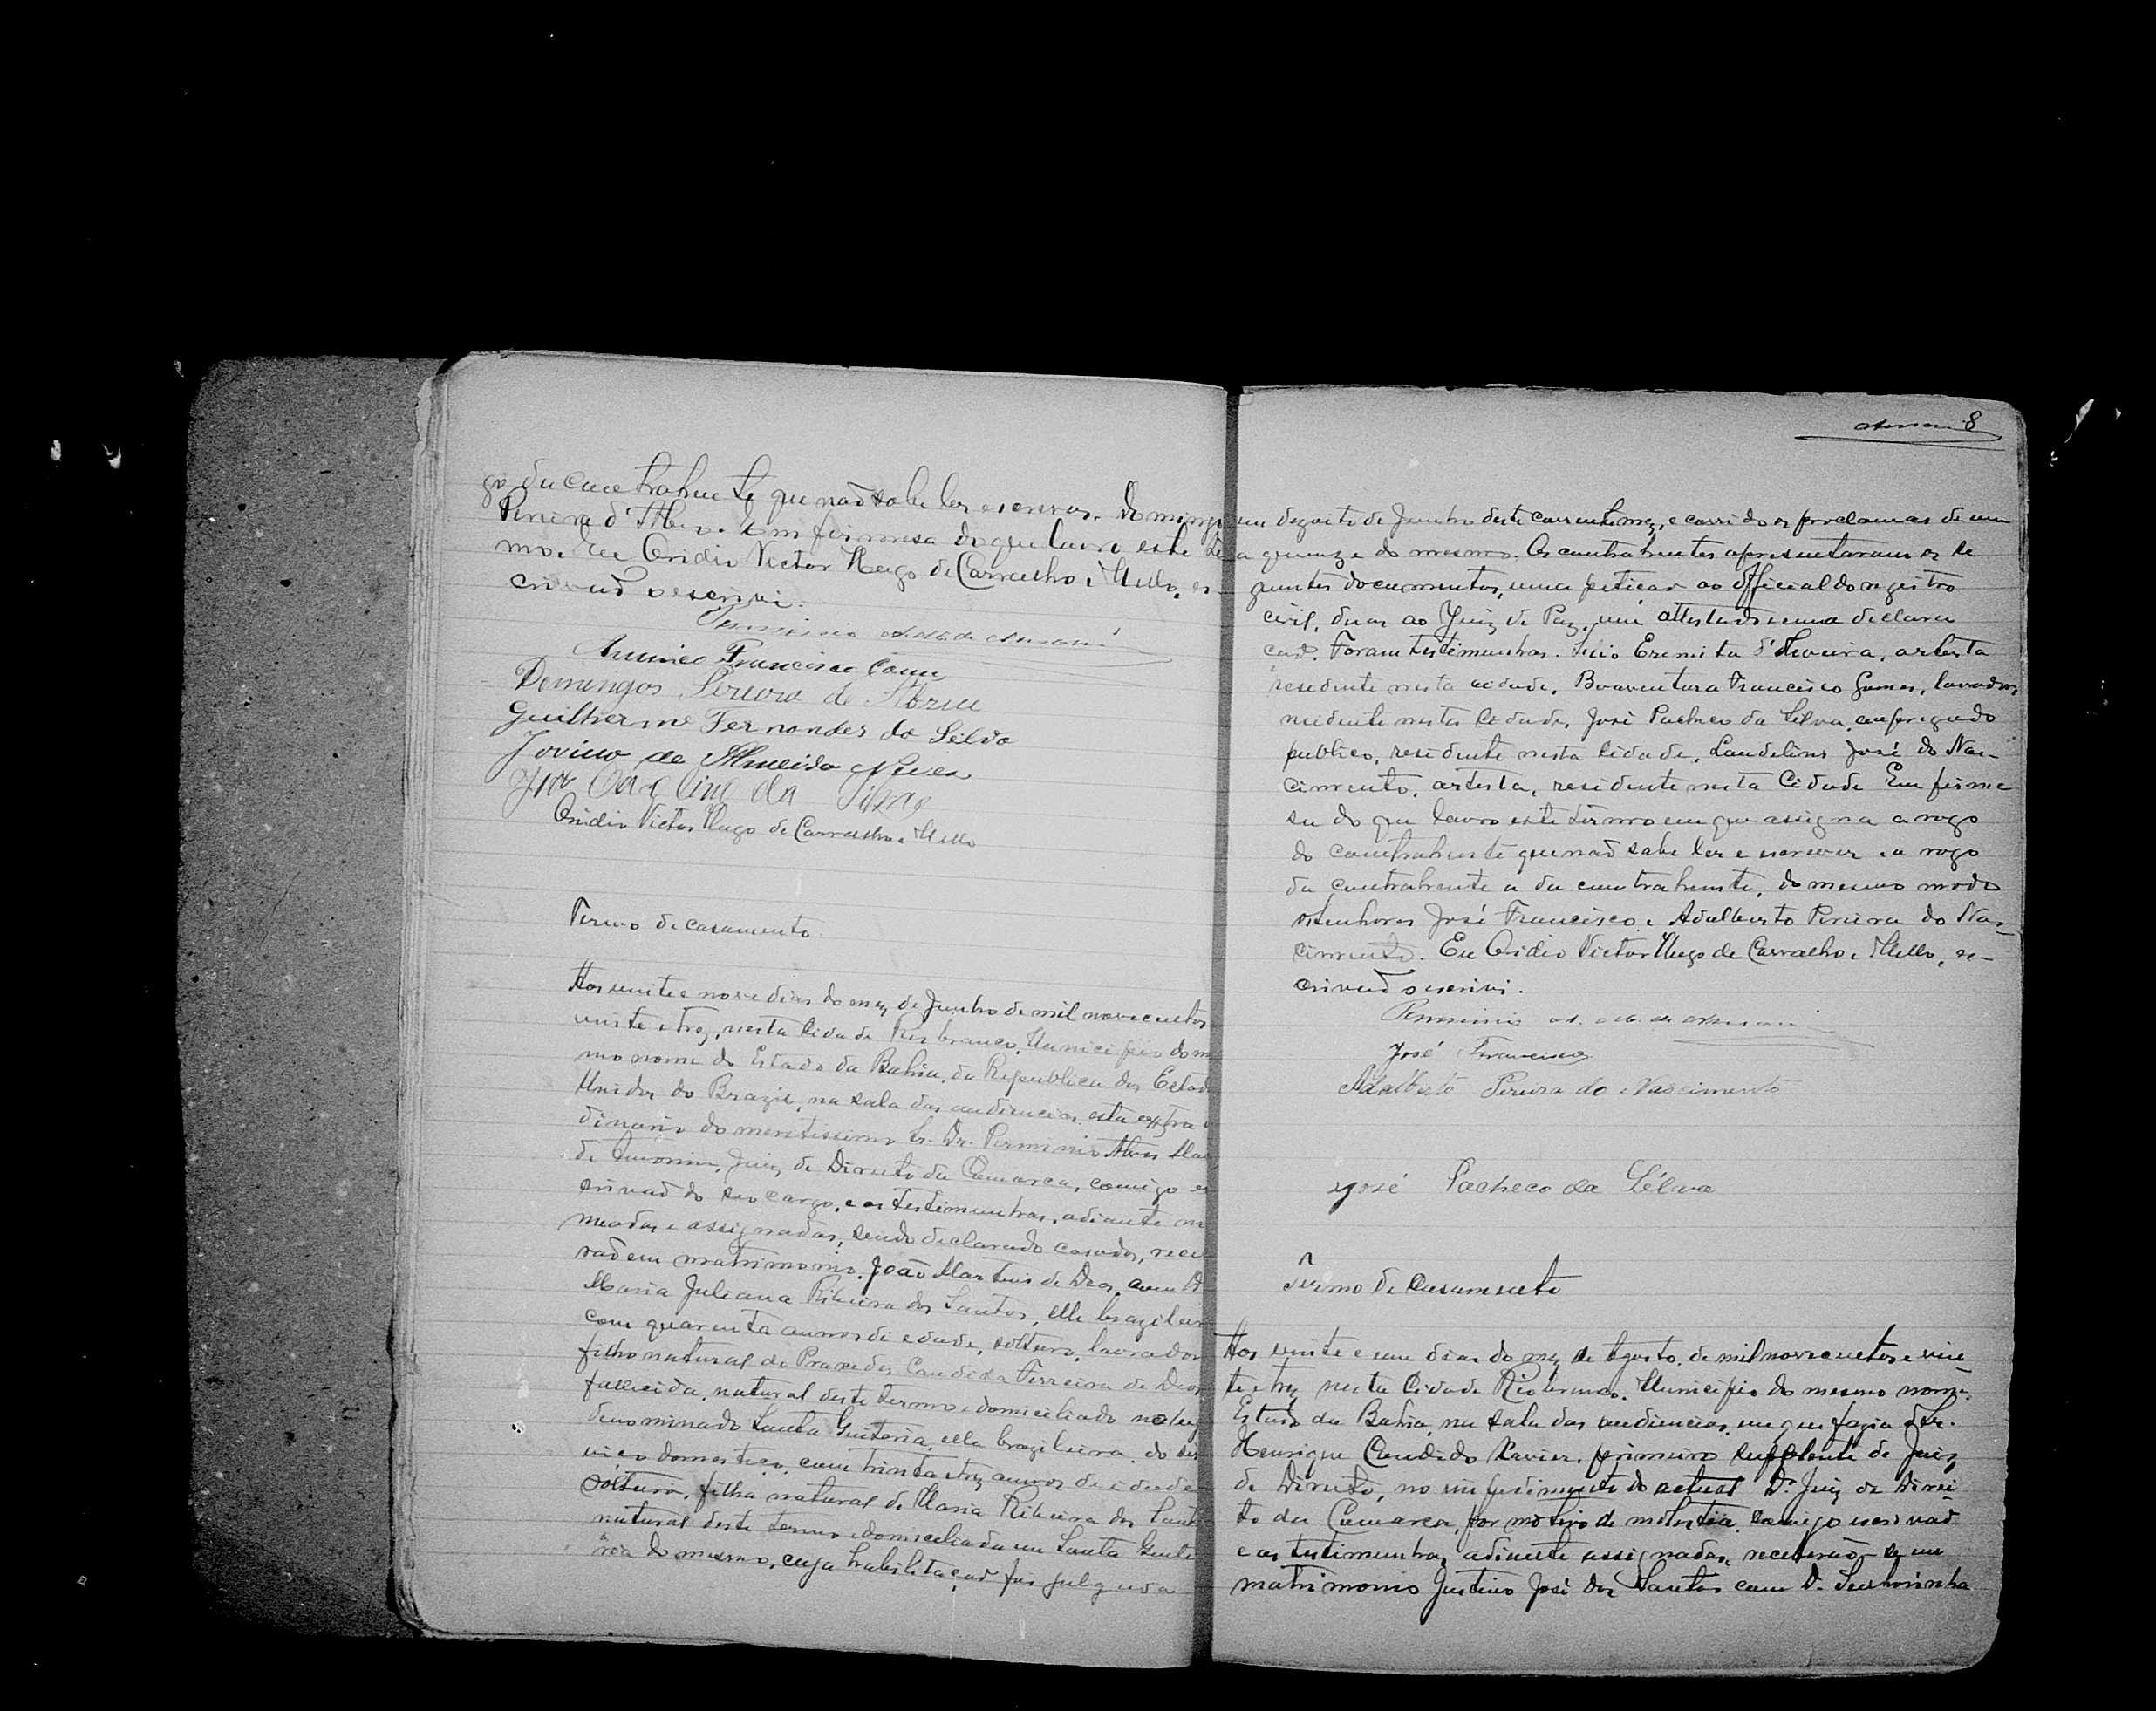 go da contrahente que não sabe ler e escrever. Domingos
Pereira d'Abreu. Em firmesa do que lavro este ter
mo. Eu Ovidio Victor Hugo de Carvalho e Mello, es-
crivão o escrevi.
Arsenico Francisco
Domingos Pereira de Abreu
Guilherme Fernandes da Silva
Jovino de Almeida Neves
da Silva
Ovidio Victor Hugo de Carvalho e Mello
Termo de casamento
Aos vinte e nove dias do mez de Junho de mil novecentos
vinte e trez, nesta Cidade Rio branco, Municipio do m
mo nome do Estado da Bahia, da Republica dos Estad
Unidos do Brazil, na sala das audiencias esta extra
dinario do meretissimo Sr. Dr. Perminio Alves
de Amorim, Juiz de Direito da Comarca, comigo es
crivão do seo cargo, e as testimunhas, adiante no
meadas e assignadas, sendo declarado casados, rece
rão em matrimonio. João Martins de Deos, com D.
Maria Juliana Ribeira dos Santos, elle brazileir
com quarenta annos de edade, solteiro, lavrador
filho natural de Praxedes Candida Ferreira de Deos
fallecida, natural deste termo e domiciliado no lug
denominado Santa Quiteria, ella brazileira, do ser
viço domestico, com trinta e trez annos de idade
solteira, filha natural de Maria Ribeira dos Sant
natural deste termo e domiciliada em Santa Quite
ria do mesmo, cuja habilitação foi julgada
8
em dezoito de Junho deste corrente mez, e corrido os proclamas de um
a quinze do mesmo. Os contrahentes apresentaram os se
guintes documentos, uma petição ao official do registro
civil, duas ao Juiz de Paz, um attestado e uma declara
ção. Foram testimunhas. Eremita d'Oliveira, artista
resedente nesta cidade, Boaventura Francisco Gomes, lavador
residente nesta Cidade, José Pacheco da Silva, empregado
publico, residente nesta Cidade, Laudelino José do Nas-
cimento, artista, residente nesta Cidade Em firme
sa do que lavro este termo em que assigna a rogo
do contrahente que não sabe ler e escrever e a rogo
da contrahente a da contrahente, do mesmo modo
os senhores José Francisco e Adalberto Pereira do Nas-
cimento. Eu Ovidio Victor Hugo de Carvalho e Mello, es-
crivão o escrevi.
José Francisco
Adalberto Pereira do Nascimento
José Pacheco da Silva
Termo de Casamento
Aos vinte e um dias do mez de Agosto de mil novecentos e vin
te e trez nesta Cidade Rio branco, Municipio do mesmo nome.
Estado da Bahia, na sala das audiencias, em que fazia o Sr.
Henrique Candido Xavier, primeiro suplente de Juiz
de Direito, no impedimento do actual Dr. Juiz de Direi
to da Comarca, por motivo de molestia, comigo escrivão
e as testimunhas adiante assignadas, receberão-se em
matrimonio Justino José dos Santos com D. Senhorinha